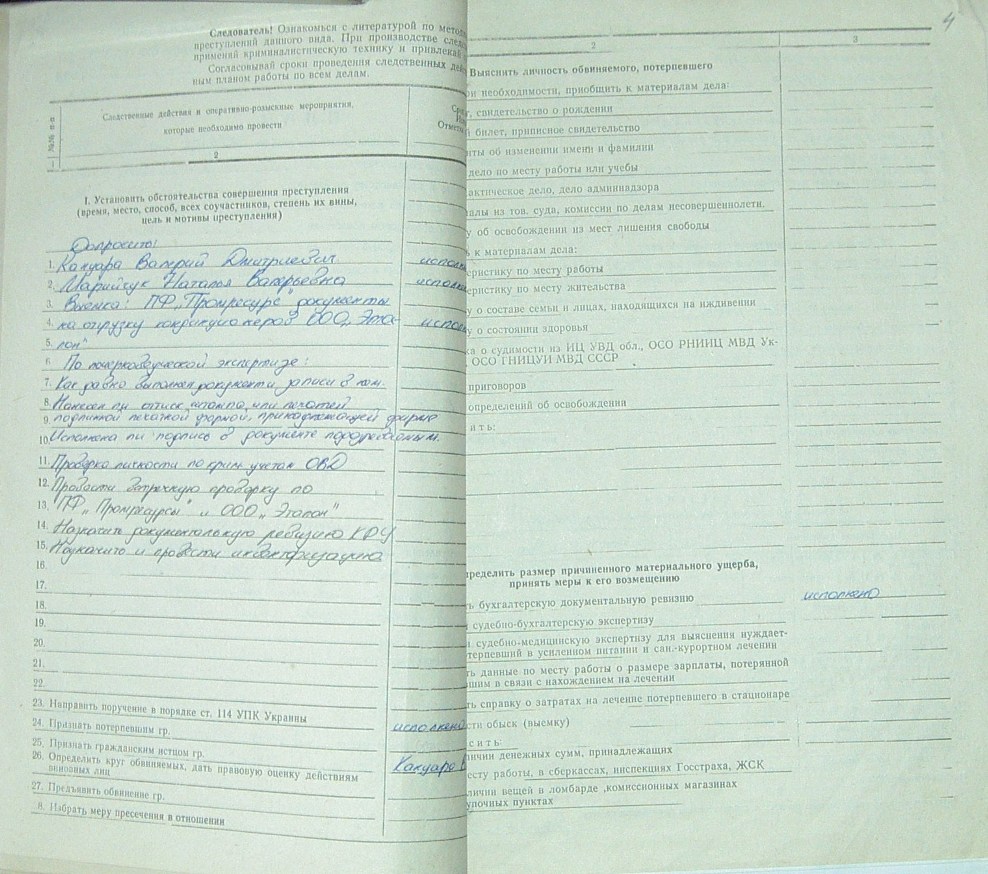 Следователь! Ознакомься с литературой по
преступлений данного вида. При производстве
применяй криминалистическую технику и привлекай
Согласовывай сроки проведения следственных
ным планом работы по всем делам.
№№ п-п
Следственные действия и оперативно-розыскные мероприятия,
которые необходимо провести
1
2
I. Установить обстоятельства совершения преступления
(время, место, способ, всех соучастников, степень их вины,
цель и мотивы преступления)
Допросить:
1. Какуара Валерий Дмитриевич
2. Марийчук Наталья Валерьевна
3. Выемка: ПФ "Промресурс" документы
4. на отгрузку ООО "Эта-
5. лон"
6. По почерковедческой экспертизе:
7. Как давно документы, записи в
8. Нанесен ли оттиск штампа или печатей
9. подлинной печатной формой, принадлежащей фирме
10. Исполнена ли подпись в документе подозреваемым.
11. Проверка личности по крим учетам ОВД
12. Провести встречную проверку по
13. "ПФ "Промресурсы" и ООО "Эталон"
14. Назначить документальную ревизию КРУ
15. Назначить и провести
16.
17.
18.
19.
20.
21.
22.
23. Направить поручение в порядке ст. 114 УПК Украины
24. Признать потерпевшим гр. исполнено
25. Признать гражданским истцом гр.
26. Определить круг обвиняемых, дать правовую оценку действиям
виновных лиц Какуара
27. Предъявить обвинение гр.
8. Избрать меру пресечения в отношении
4
2
3
Выяснить личность обвиняемого, потерпевшего
и необходимости, приобщить к материалам дела:
свидетельство о рождении
билет, приписное свидетельство
ты об изменении имени и фамилии
дело по месту работы или учебы
актическое дело, дело админнадзора
алы из тов. суда, комиссии по делам несовершеннолетн.
у об освобождении из мест лишения свободы
к материалам дела:
еристику по месту работы
еристику по месту жительства
у о составе семьи и лицах, находящихся на иждивении
у о состоянии здоровья
ка о судимости из ИЦ УВД обл., ОСО РНИИЦ МВД Ук-
ОСО ГНИЦУИ МВД СССР
приговоров
определений об освобождении
ить:
ределить размер причиненного материального ущерба,
принять меры к его возмещению
ь бухгалтерскую документальную ревизию исполнено
судебно-бухгалтерскую экспертизу
судебно-медицинскую экспертизу для выяснения нуждает-
терпевший в усиленном питании и сан.-курортном лечении
ть данные по месту работы о размере зарплаты, потерянной
шим в связи с нахождением на лечении
ть справку о затратах на лечение потерпевшего в стационаре
сти обыск (выемку)
сить:
ичии денежных сумм, принадлежащих
есту работы, в сберкассах, инспекциях Госстраха, ЖСК
личии вещей в ломбарде ,комиссионных магазинах
упочных пунктах